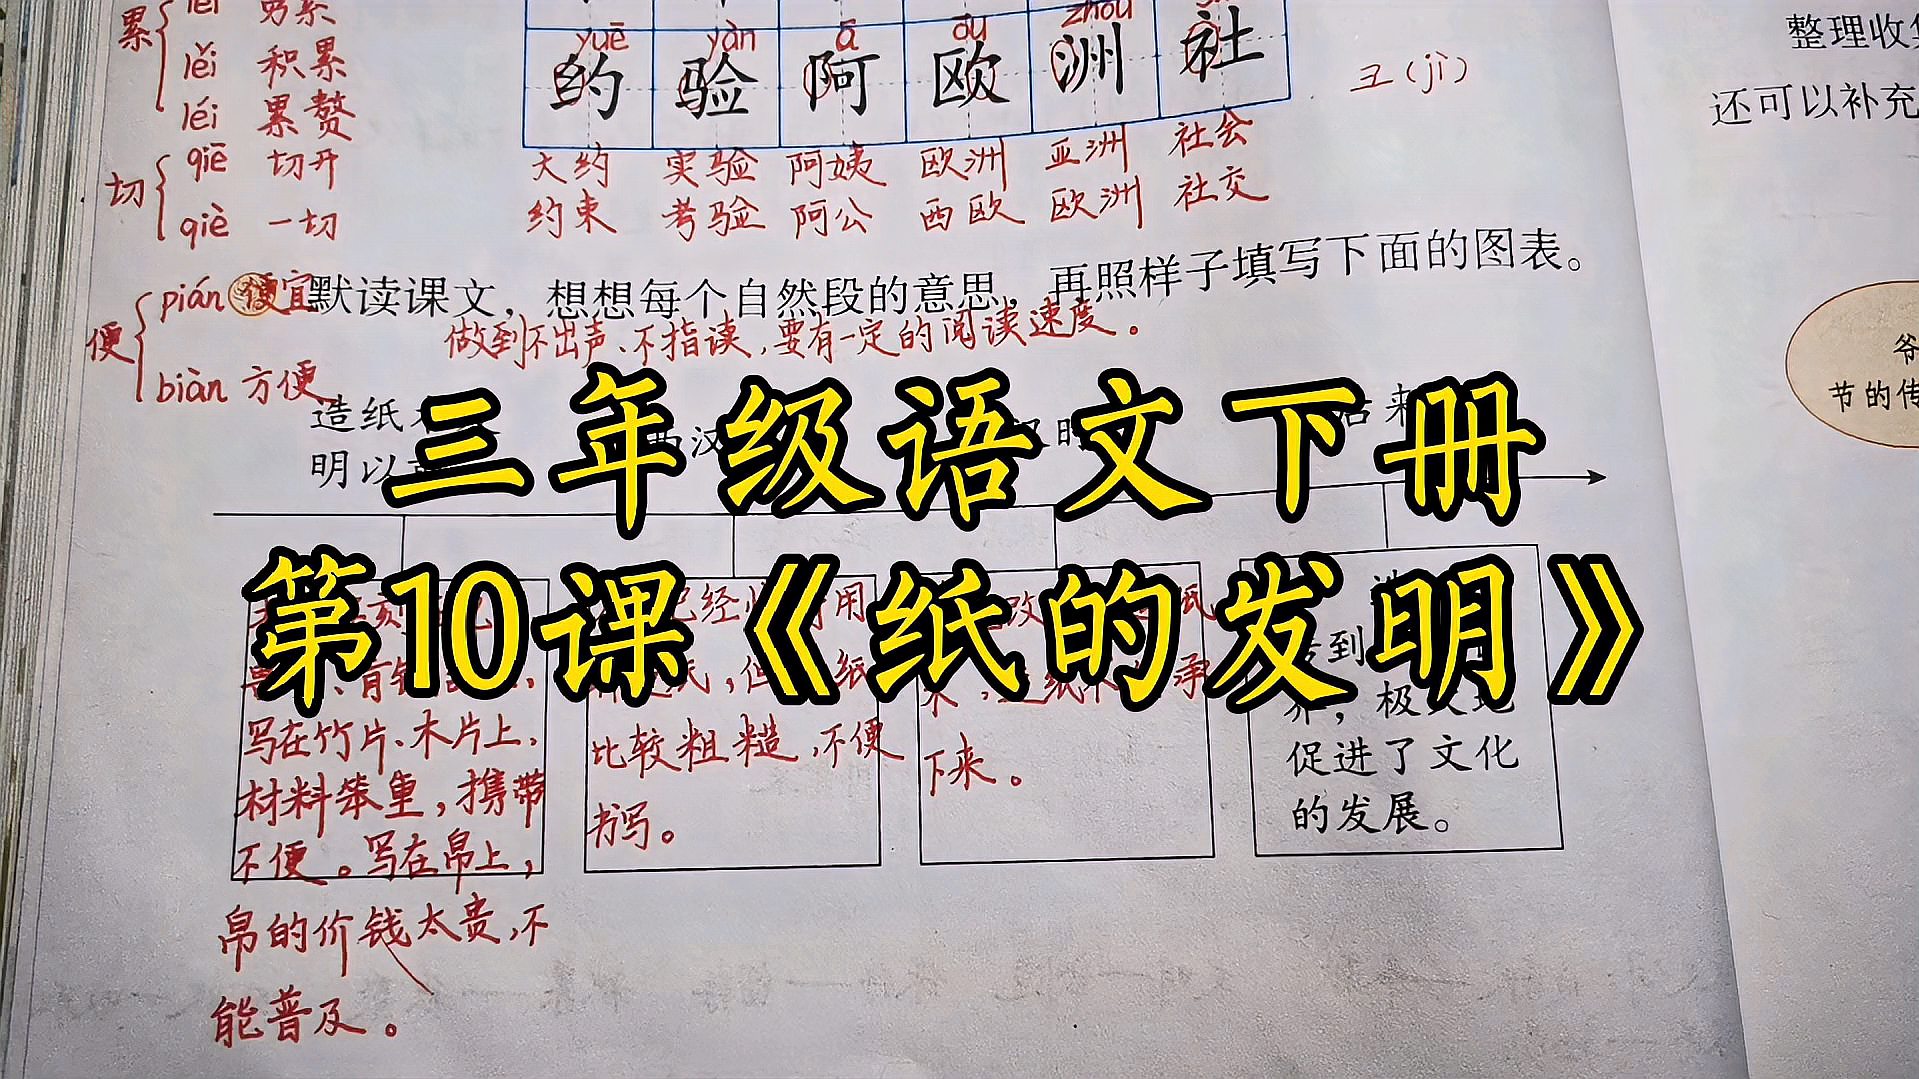 累
lěi 积累
léi 累赘
切
qiē 切开
qiè 一切
便
pián 便宜
biàn 方便
yuē yàn ā ōu zhōu
约 验 阿 欧 洲 社
大约 实验 阿姨 欧洲 亚洲 社会
约束 考验 阿公 西欧 欧洲 社交
彐(jì)
默读课文，想想每个自然段的意思，再照样子填写下面的图表。
做到不出声、不指读，要有一定的阅读速度。
造纸术
明以
三年级语文下册
第10课《纸的发明》
写在竹片、木片上，
材料笨重，携带
不便。写在帛上，
帛的价钱太贵，不
能普及。
已经 用
纸，但 纸
比较粗糙，不便
书写。
改
承
下来。
到
界，极大地
促进了文化
的发展。
整理收
还可以补充
爷
节的传